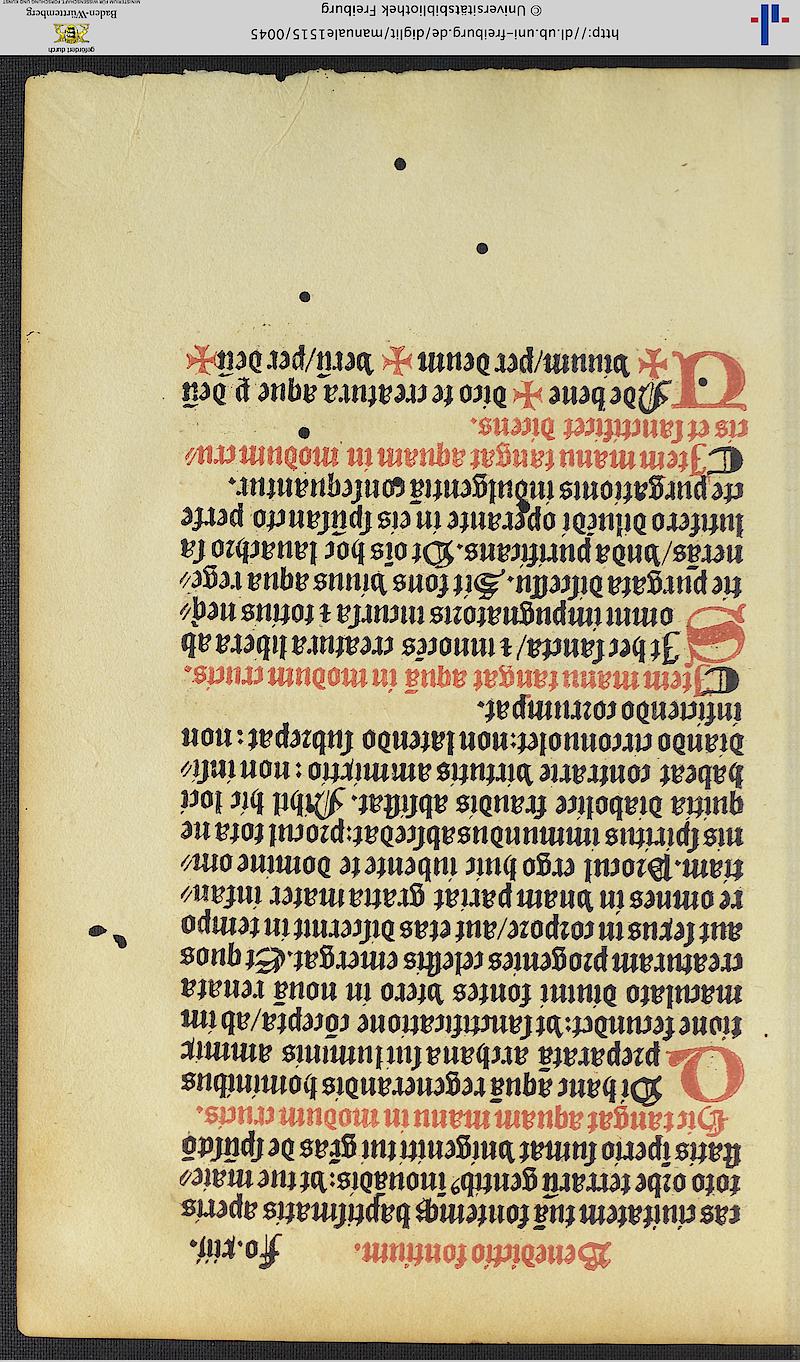 Benedictio fontium. Fo.xiij.
ras ciuitatem tuā fontemqꝫ baptismatis aperis
toto orbe terrarū gentibꝰ inouādis: vt tue maie⸗
statis īperio sumat vnigeniti tui grās de spūscō
Hic tangat aquam manu in modum crucis.
QUi hanc aquā regenerandis hominibus
preparatā archana sui luminis ammix
tione fecundet: vt sanctificatione cōcepta/ab im
maculato diuini fontes vtero in nouā renata
creaturam progenies celestis emergat. Et quos
aut sexus in corpore/aut etas discernit in tempo
re omnes in vnam pariat gratia mater infan⸗
tiam. Procul ergo huic iubente te domine om⸗
nis spiritus immundus abscedat: procul tota ne
quitia diabolice fraudis absistat. Nihil hic loci
habeat contrarie virtutis ammixtio: non insi⸗
diando circonuolet: non latendo subrepat: non
inficiendo corrumpat.
¶ Item manu tangat aquā in modum crucis.
SIt hec sancta/ ⁊ innocēs creatura libera ab
omni impugnatoris incursu ⁊ totius neq⸗
tie purgata discessu. Sit fons viuus aqua rege⸗
nerās/vnda purificans. Vt oīs hoc lauachro sa
lutifero diluēdi operante in eis spūsancto perfe
cte purgationis indulgentiā consequantur.
¶ Item manu tangat aquam in modum cru⸗
cis et sanctificet dicens.
UNde bene ✠ dico te creatura aque ꝑ deū
✠ viuum/per deum ✠ verū/per deū ✠
http://dl.ub.uni-freiburg.de/diglit/manuale1515/0045
© Universitätsbibliothek Freiburg
gefördert durch
Baden-Württemberg
MINISTERIUM FÜR WISSENSCHAFT, FORSCHUNG UND KUNST